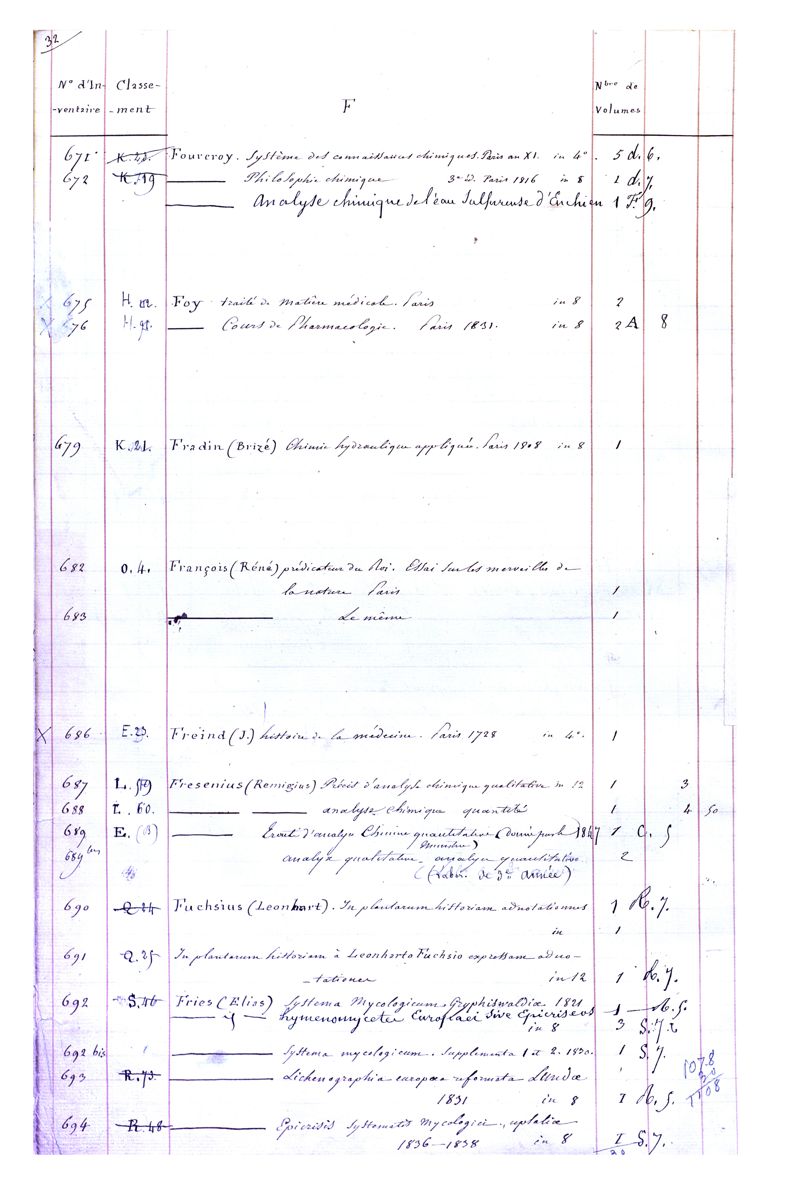 32
N° d'In- Classe- Nbre de
-ventaire -ment F Volumes
671 K.22. Fourcroy. Système des connaissances chimiques. Paris an XI. in 4°. 5 d. 6.
672 K.19 Philosophie chimique 3e éd. Paris 1816 in 8 1 d. 7.
Analyse chimique de l'eau Sulfureuse d'Enghien 1 F. 9.
675 H. Foy traité de matière médicale. Paris in 8 2
X 676 H.98. Cours de Pharmacologie. Paris 1831. in 8 2 A 8
679 K.21. Fradin (Brizé) Chimie hydraulique appliquée. Paris 1808 in 8 1
682 O.4. François (Réné) prédicateur du Roi. Essai sur les merveilles de
la nature Paris 1
683 Le même 1
X 686 E.23. Freind (J.) histoire de la médecine. Paris 1728 in 4°. 1
687 L.59 Fresenius (Remigius) Précis d'analyse chimique qualitative in 12 1 3
688 L.60. analyse chimique quantité 1 4 50
689 E. Traité d'analyse Chimique quantitative (donné par le 1847 1 C. 5
ministre)
689 bis analyse qualitative – analyse quantitative 2
(Labor. de 3e année)
690 Q.24 Fuchsius (Leonhart). In plantarum historiam adnotationes 1 R. 7.
in 1
691 Q.25 In plantarum historiam à Leonharto Fuchsio expressam adno-
-tationes in 12 1 R. 7.
692 S.46 Fries (Elias) Systema Mycologicum. Gryphiswaldiæ 1821 1 R. 5.
Hymenomycetes Europaei Sive Epicriseos
in 8 3 S. 7.
692 bis Systema mycologicum. Supplementa 1 et 2. 1830. 1 S. 7.
693 R.73. Lichenographia europæa reformata Lundæ
1831 in 8 1 R. 5.
1078
30
1108
694 R.48 Epicrisis Systematis Mycologici. upsaliæ
1836–1838 in 8 1 S. 7.
30